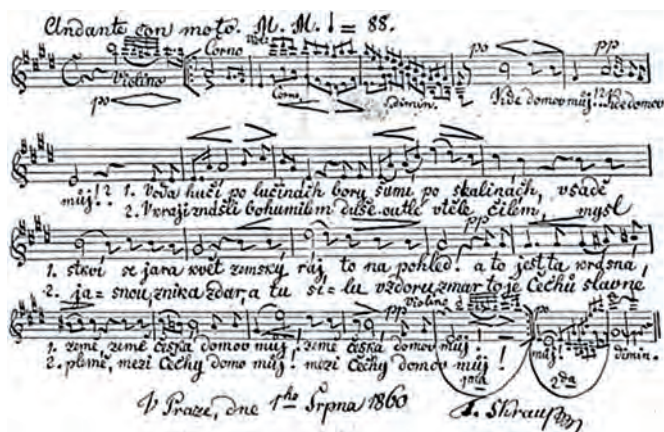 Andante con moto. M. M. ♩ = 88.
Corno Viol:
Violino Corno dimin. po pp
po Kde domov můj! Kde domov
můj!? 1. Voda hučí po lučinách bory šumí po skalinách, v sadě
2. V kraji znášli bohumilém duše outlé v těle čilém, mysl
pp
1. stkví se jara květ zemský ráj to na pohled! a to jest ta krásná,
2. ja=snou, znik a zdar, a tu sí=lu vzdoru zmar to je Čechů slavné
violino
pp
1. země, země česká domov můj! země česká domov můj! můj! dimin.
2. plémě, mezi Čechy domov můj! mezi Čechy domov můj!
1ma 2da
V Praze, dne 1ho Srpna 1860 F. Skraup